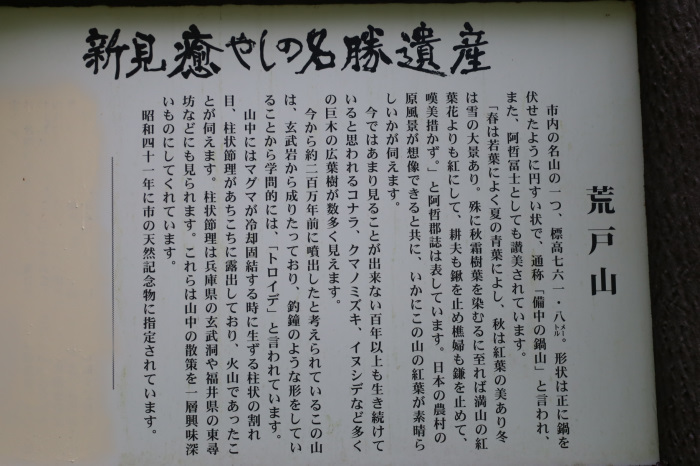 新見癒やしの名勝遺産
荒戸山
市内の名山の一つ、標高七六一・八メートル。形状は正に鍋を
伏せたように円すい状で、通称「備中の鍋山」と言われ、
また、阿哲富士としても讃美されています。
「春は若葉によく夏の青葉によし、秋は紅葉の美あり冬
は雪の大景あり。殊に秋霜樹葉を染むるに至れば満山の紅
葉花よりも紅にして、耕夫も鍬を止め樵婦も鎌を止めて、
嘆美措かず。」と阿哲郡誌は表しています。日本の農村の
原風景が想像できると共に、いかにこの山の紅葉が素晴ら
しいかが伺えます。
今ではあまり見ることが出来ない百年以上も生き続けて
いると思われるコナラ、クマノミズキ、イヌシデなど多く
の巨木の広葉樹が数多く見えます。
今から約二百万年前に噴出したと考えられているこの山
は、玄武岩から成りたっており、釣鐘のような形をしてい
ることから学問的には、「トロイデ」と言われています。
山中にはマグマが冷却固結する時に生ずる柱状の割れ
目、柱状節理があちこちに露出しており、火山であったこ
とが伺えます。柱状節理は兵庫県の玄武洞や福井県の東尋
坊などにも見られます。これらは山中の散策を一層興味深
いものにしてくれています。
昭和四十一年に市の天然記念物に指定されています。